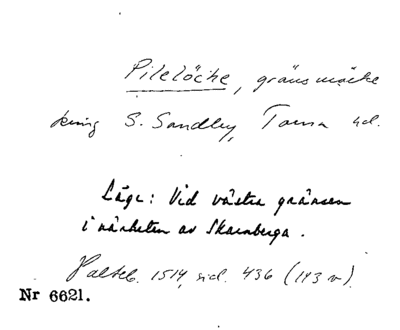 Pilelöcke, gränsmärke
kring S. Sandby, Torna hd.
Läge: Vid västra gränsen
i närheten av Skarnberga.
Halleb. 1514, sid. 436 (193 v)
Nr 6621.